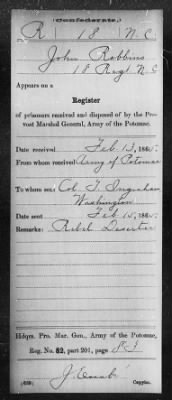 (Confederate.)
R 18 N C
John Robbins
18 Regt N C
Appears on a
Register
of prisoners received and disposed of by the Pro-
vost Marshal General, Army of the Potomac.
Date received Feb 13, 1865.
From whom received Army of Potomac
To whom sent Col. T. Ingraham
Washington
Date sent Feb 15, 1865.
Remarks: Rebel Deserter
Hdqrs. Pro. Mar. Gen., Army of the Potomac,
Reg. No. 82, part 201, page
Copyist.